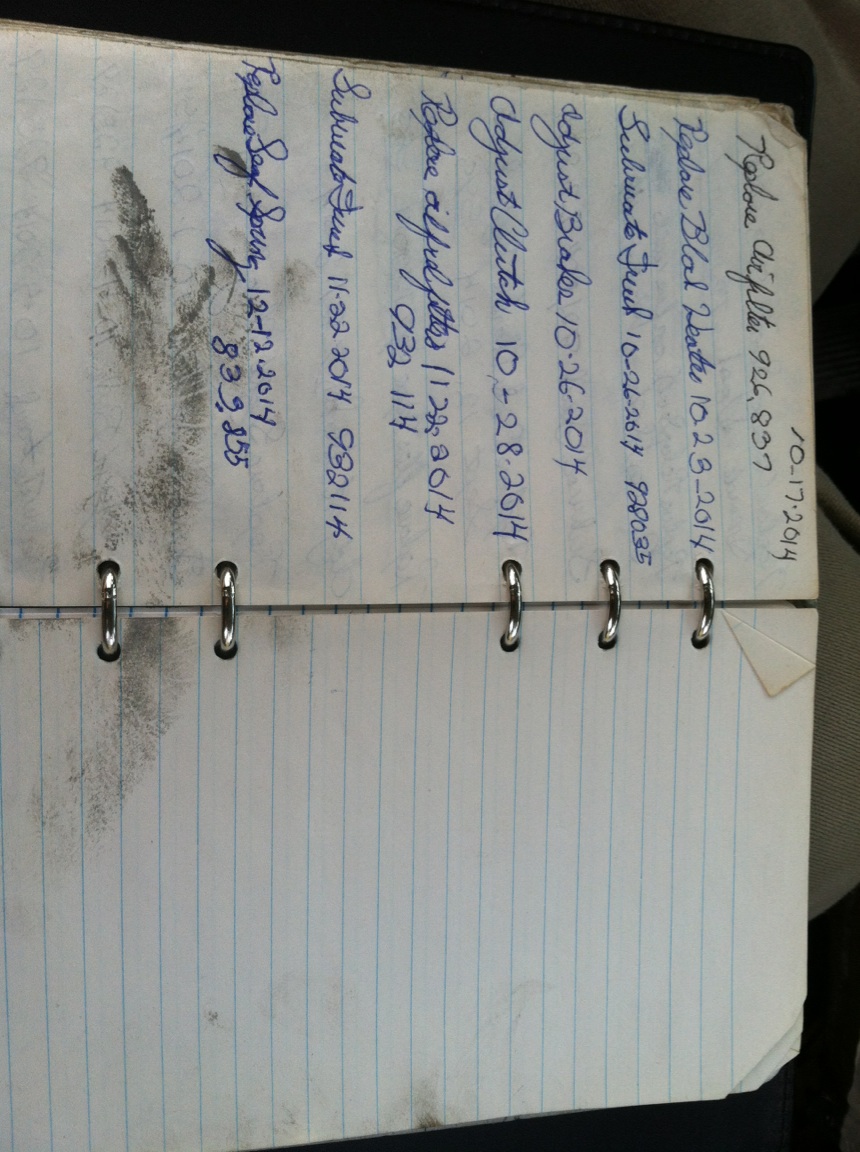 10-17-2014
Replace Airfilter 926,837
Replace Block Heater 10-23-2014
Lubricate Truck 10-26-2014 928035
Adjust Brakes 10-26-2014
Adjust Clutch 10-28-2014
Replace oil fuel filters 11 22, 2014
932 114
Lubricate Truck 11-22 2014 932114
Replace Spring 12-12, 2014
839,855